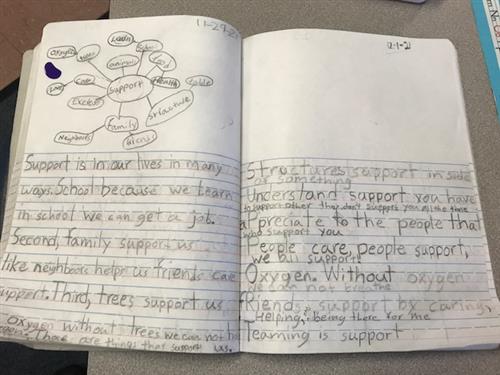 11-29-2
Learn
School
oxygen
trees
animals
food
Love
Care
support
Health
table
Exercise
structure
family
Neighbors
friends
Support is in our lives in many
ways. School because we learn
in school we can get a job.
Second, family support us
like neighbors help us friends care
support. Third, trees support us
oxygen without trees we can not ha
oxygen. Those are things that support us.
12-1-21
Structures support in side
or something
Understand support you have
to support other they don't support you all the time
apreciate to the people that
who support you
People care, people support,
we all support
Oxygen. Without oxygen
we can not breathe
friends support by caring,
Helping, being there for me
Teaming is support